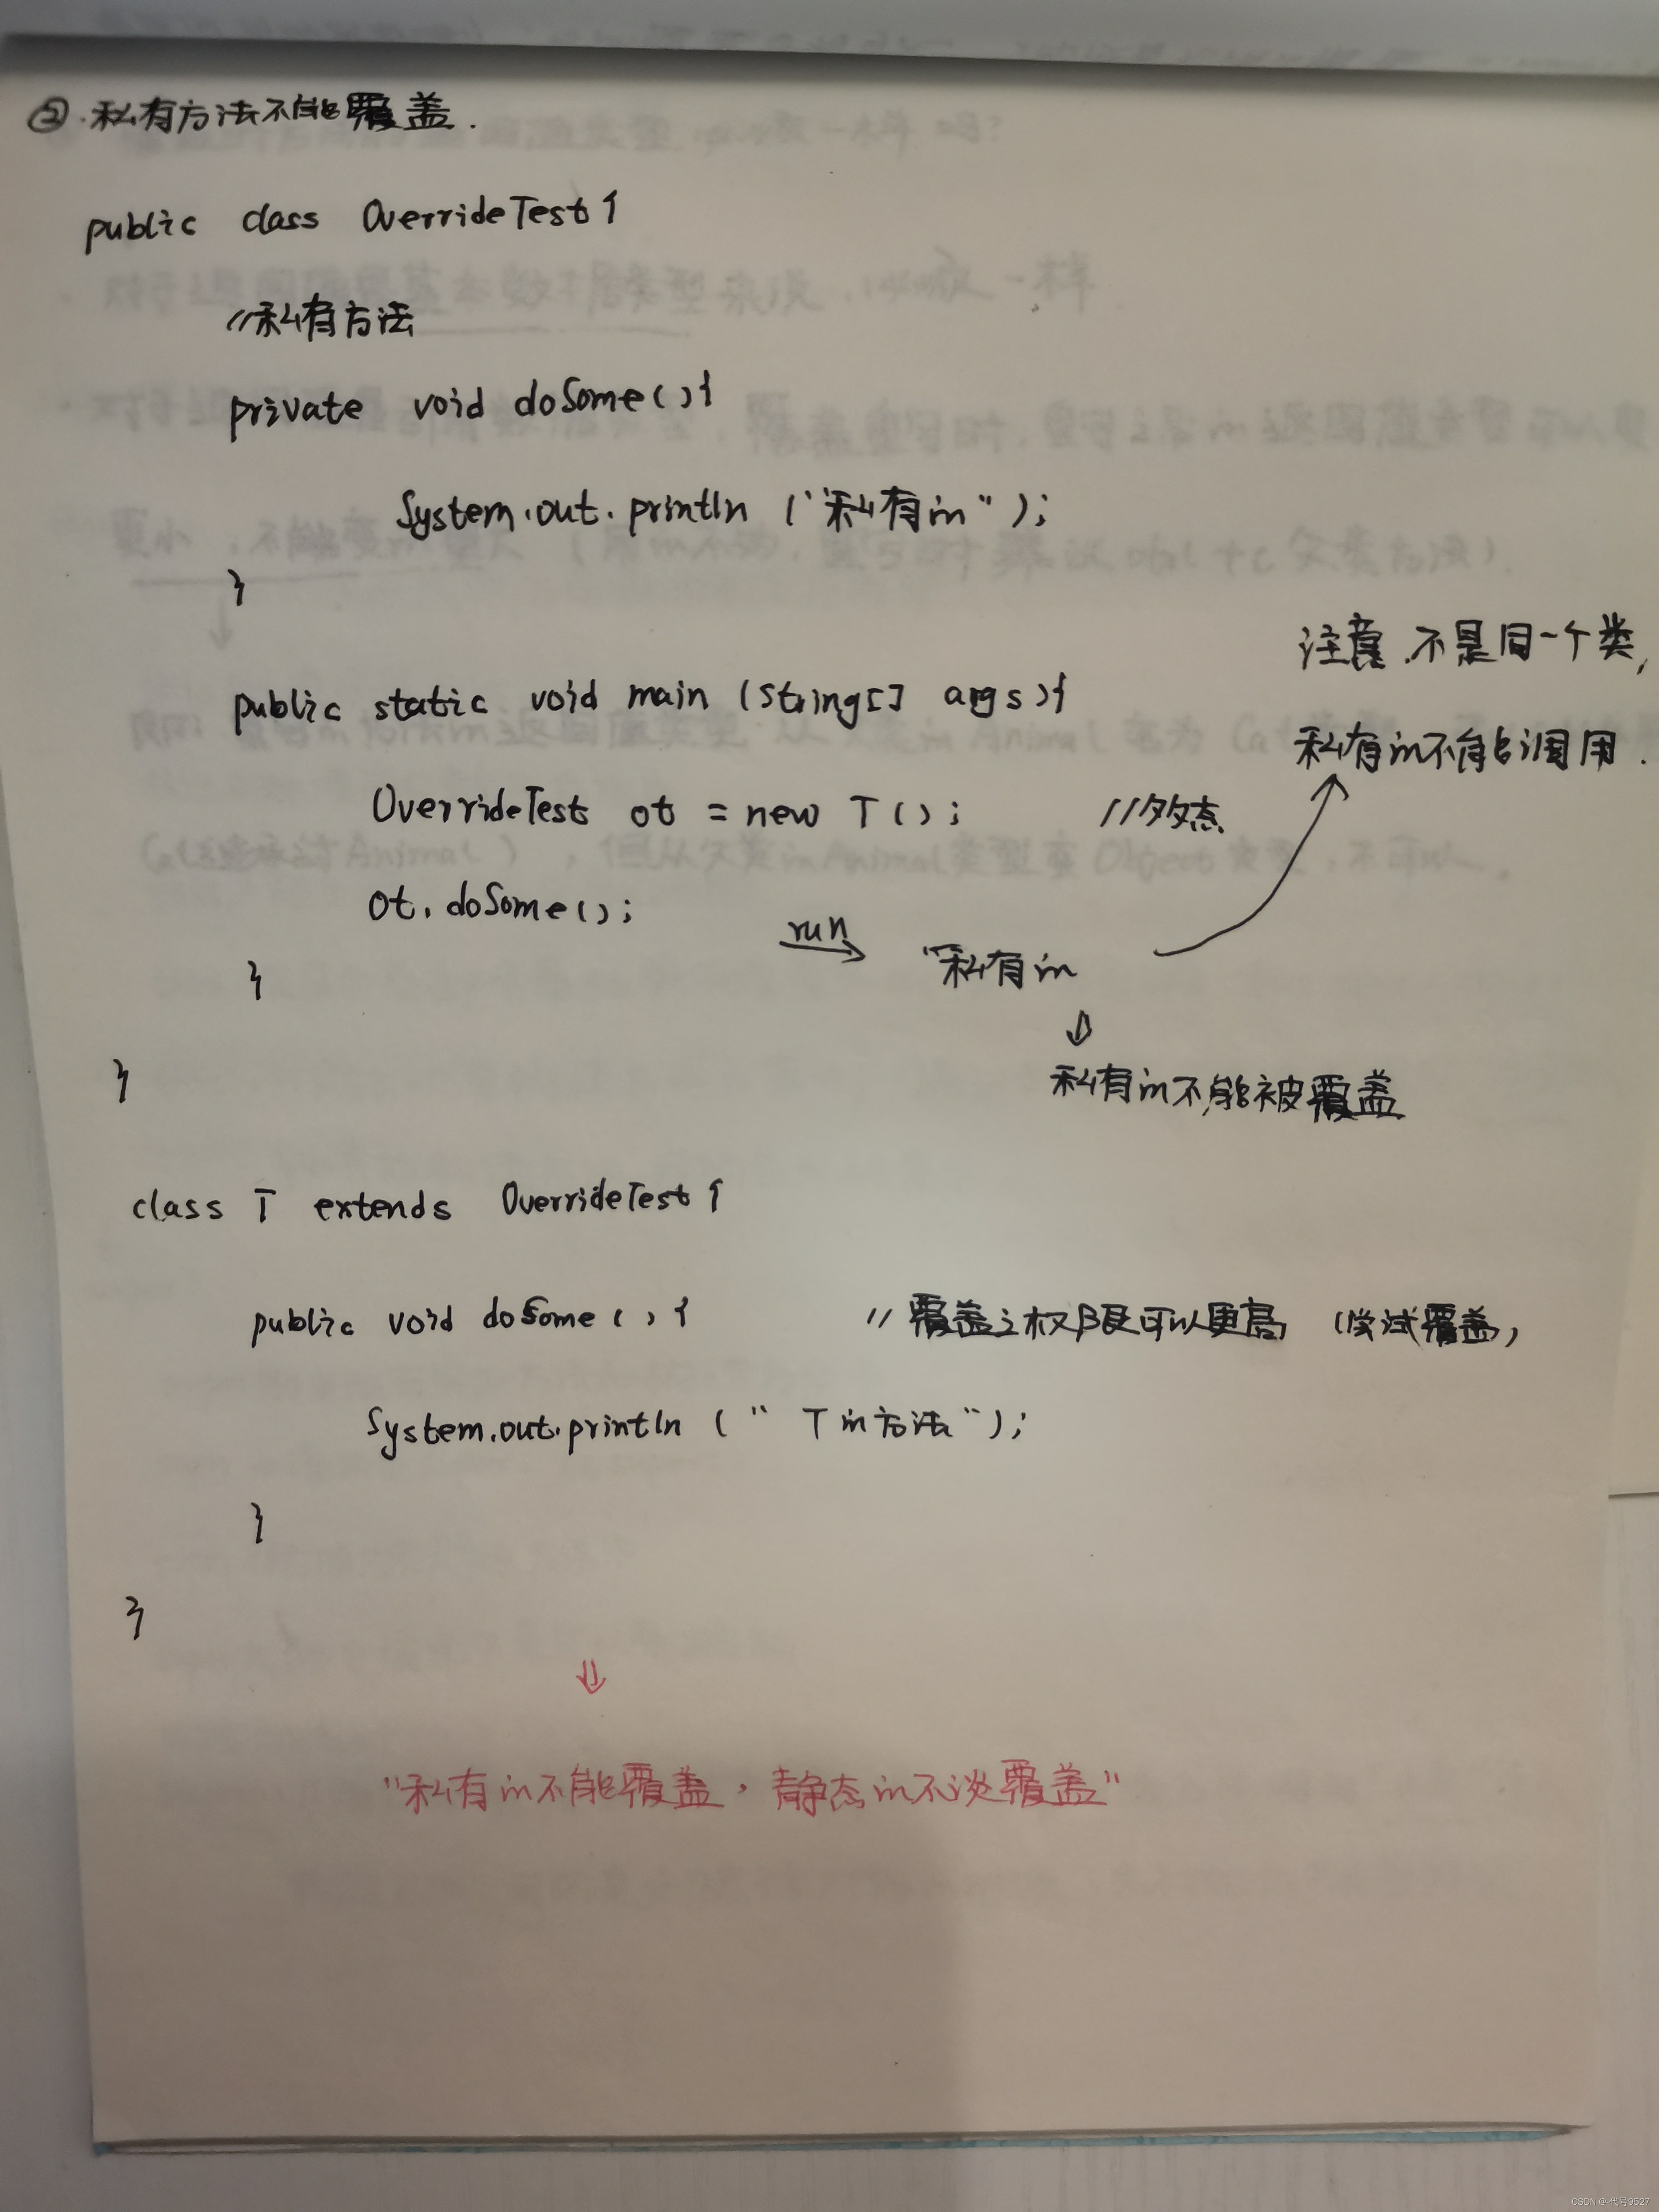 ②.私有方法不能覆盖.
public class OverrideTest{
//私有方法
private void doSome(){
System.out.println("私有m");
}
注意.不是同一个类,
public static void main(String[] args){
私有m不能调用.
OverrideTest ot = new T(); //多态
ot.doSome();
run
"私有m
}
⇓
}
私有m不能被覆盖
class T extends OverrideTest{
public void doSome(){ //覆盖之权限可以更高 (尝试覆盖)
System.out.println(" T m方法");
}
}
⇓
"私有m不能覆盖,静态m不谈覆盖"
CSDN @代号9527